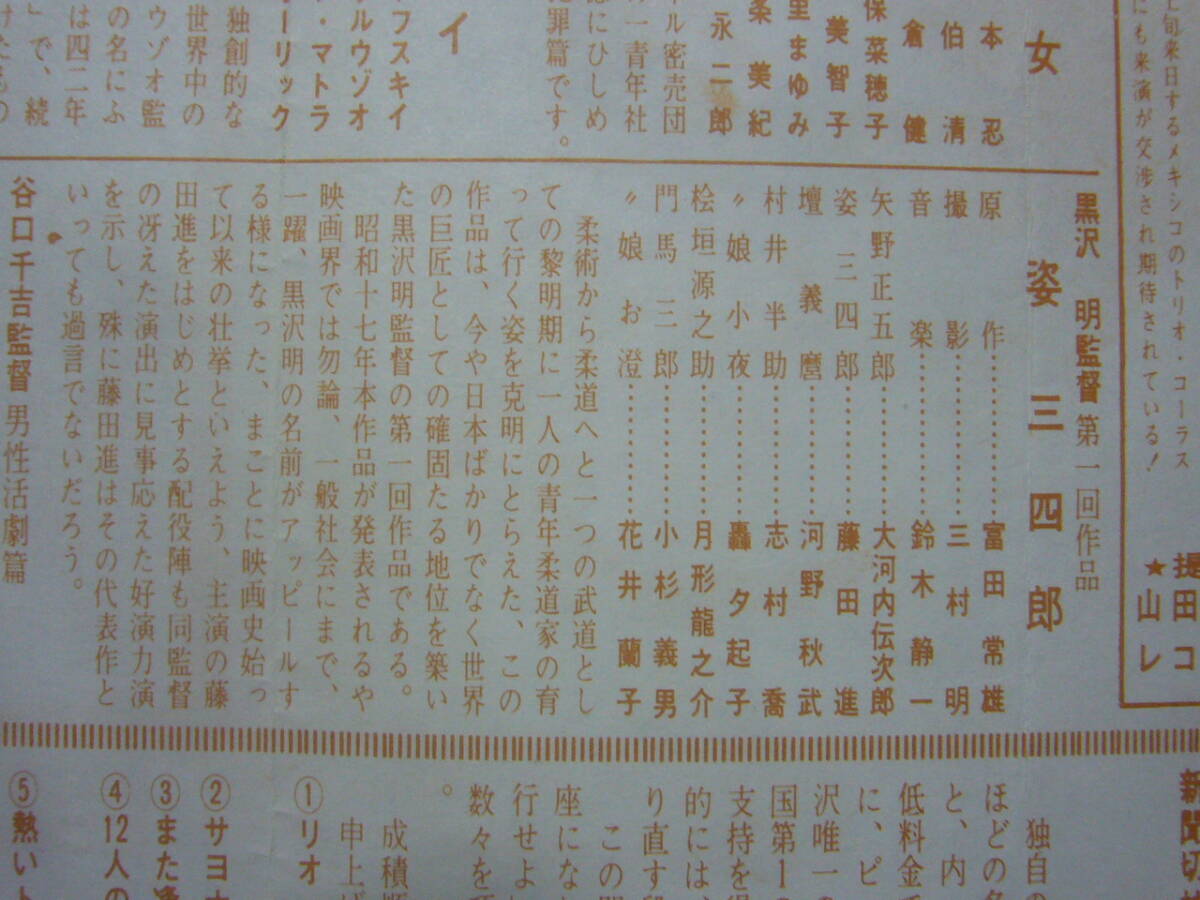 上旬来日するメキシコのトリオ・コーラス
にも来演が交渉され期待されている！
提田コ
★山レ
女
本忍
伯清
倉健
保菜穂子
美智子
里まゆみ
条美紀
永二郎
ル密売団
の一青年社
にひしめ
犯罪篇です。
イ
フスキイ
ルウゾオ
・マトラ
ーリック
独創的な
世界中の
ウゾオ監
の名にふ
は四二年
」で、続
黒沢 明監督第一回作品
姿三四郎
原作……………富田常雄
撮影……………三村明
音楽……………鈴木静一
矢野正五郎……………大河内伝次郎
姿三四郎……………藤田進
壇義麿……………河野秋武
村井半助……………志村喬
〃娘小夜……………轟夕起子
桧垣源之助……………月形龍之介
門馬三郎……………小杉義男
〃娘お澄……………花井蘭子
柔術から柔道へと一つの武道とし
ての黎明期に一人の青年柔道家の育
って行く姿を克明にとらえた、この
作品は、今や日本ばかりでなく世界
の巨匠としての確固たる地位を築い
た黒沢明監督の第一回作品である。
昭和十七年本作品が発表されるや
映画界では勿論、一般社会にまで、
一躍、黒沢明の名前がアッピールす
る様になった、まことに映画史始っ
て以来の壮挙といえよう、主演の藤
田進をはじめとする配役陣も同監督
の冴えた演出に見事応えた好演力演
を示し、殊に藤田進はその代表作と
いっても過言でないだろう。
谷口千吉監督 男性活劇篇
新聞切
独自の
ほどの名
と、内
低料金で
に、ピ
沢唯一の
国第1の
支持を得
的には、
り直す
この
座にな
行せよ
数々を
。
成積
申上げ
①リオ
②サヨナ
③また逢
④12人の
⑤熱いト